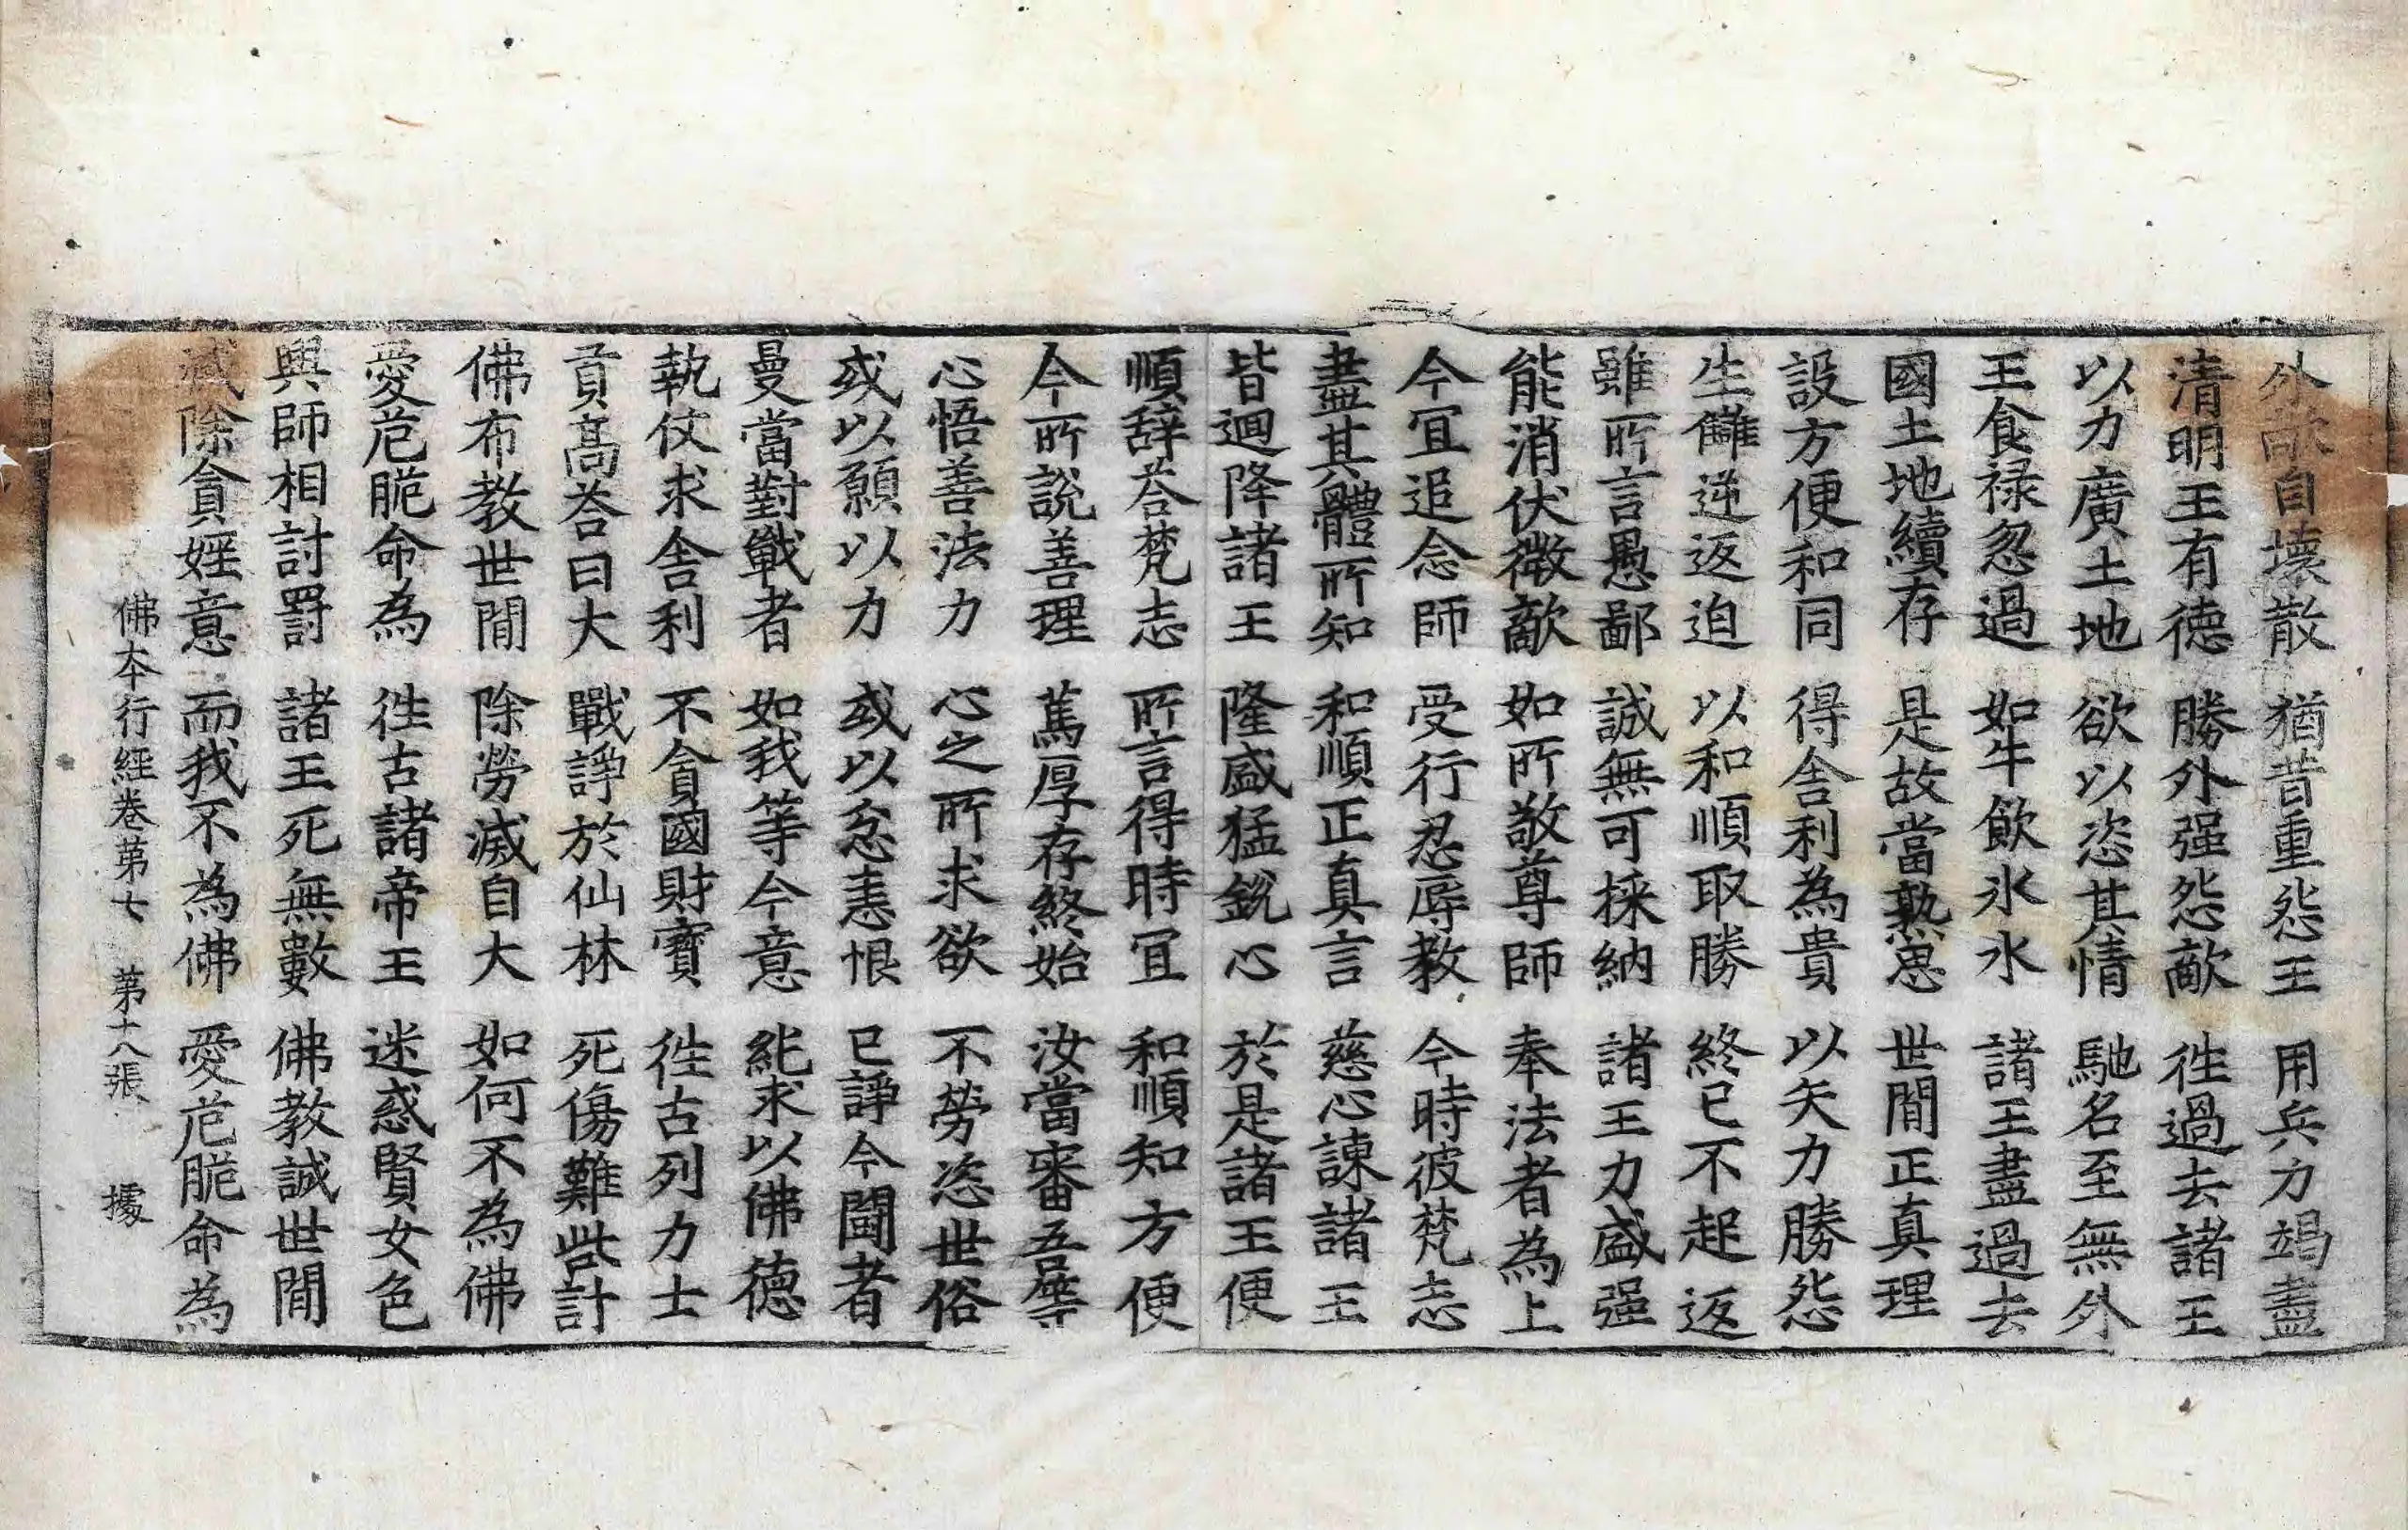 外敵自壞散　猶昔重怨王　用兵力竭盡
清明王有德　勝外强怨敵　徃過去諸王
以力廣土地　欲以恣其情　馳名至無外
王食禄忽過　如牛飲氷水　諸王盡過去
國土地續存　是故當熟思　世間正真理
設方便和同　得舎利為貴　以矢力勝怨
生讎逆返迫　以和順取勝　終已不起返
雖所言愚鄙　誠無可採納　諸王力盛强
能消伏徵敵　如所敬尊師　奉法者為上
今宜追念師　受行忍辱教　今時彼梵志
盡其體所知　和順正真言　慈心諫諸王
皆迴降諸王　隆盛猛銳心　於是諸王便
順辞荅梵志　所言得時宜　和順知方便
今所說善理　篤厚存終始　汝當審吾等
心悟善法力　心之所求欲　不勞恣世俗
或以願以力　或以忿恚恨　已諍今鬪者
曼當對戰者　如我等今意　䏻求以佛德
執仗求舎利　不貪國財寳　徃古列力士
貢髙荅曰大　戰諍於仙林　死傷難訾計
佛布教世間　除勞滅自大　如何不為佛
愛危脆命為　徃古諸帝王　迷惑賢女色
興師相討罸　諸王死無數　佛教誠世間
滅除貪婬意　而我不為佛　愛危脆命為
佛本行經卷第七　第十八張　㩀